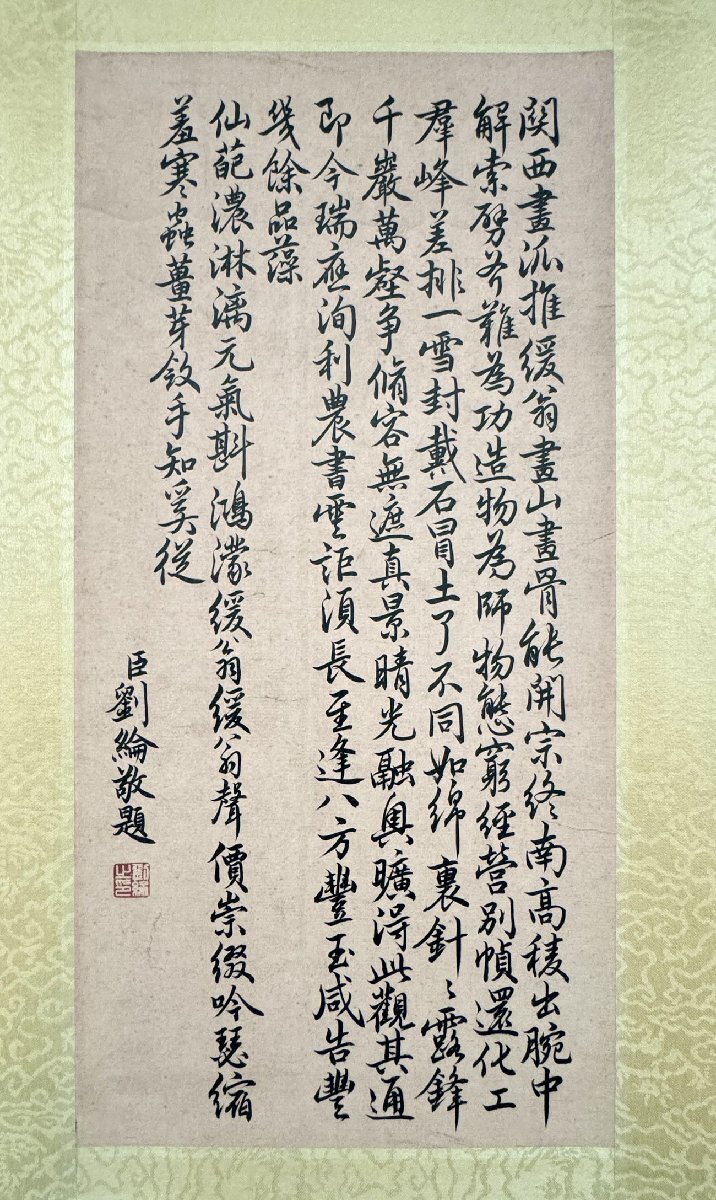 関西畫派推緩翁畫山畫骨能開宗終南高稜出腕中
解索劈斧難為功造物為師物態窮經營別幀還化工
羣峰差排一雪封戴石冒土了不同如綿裏針〻露鋒
千巖萬壑爭脩容無遮真景晴光融奧曠得此觀其通
即今瑞應洵利農書雲詎須長至逢八方豐玉咸告豐
幾餘品藻
仙葩濃淋漓元氣斟鴻濛緩翁緩翁聲價崇綴吟瑟縮
羞寒蟲薑芽斂手知奚從
臣劉綸敬題